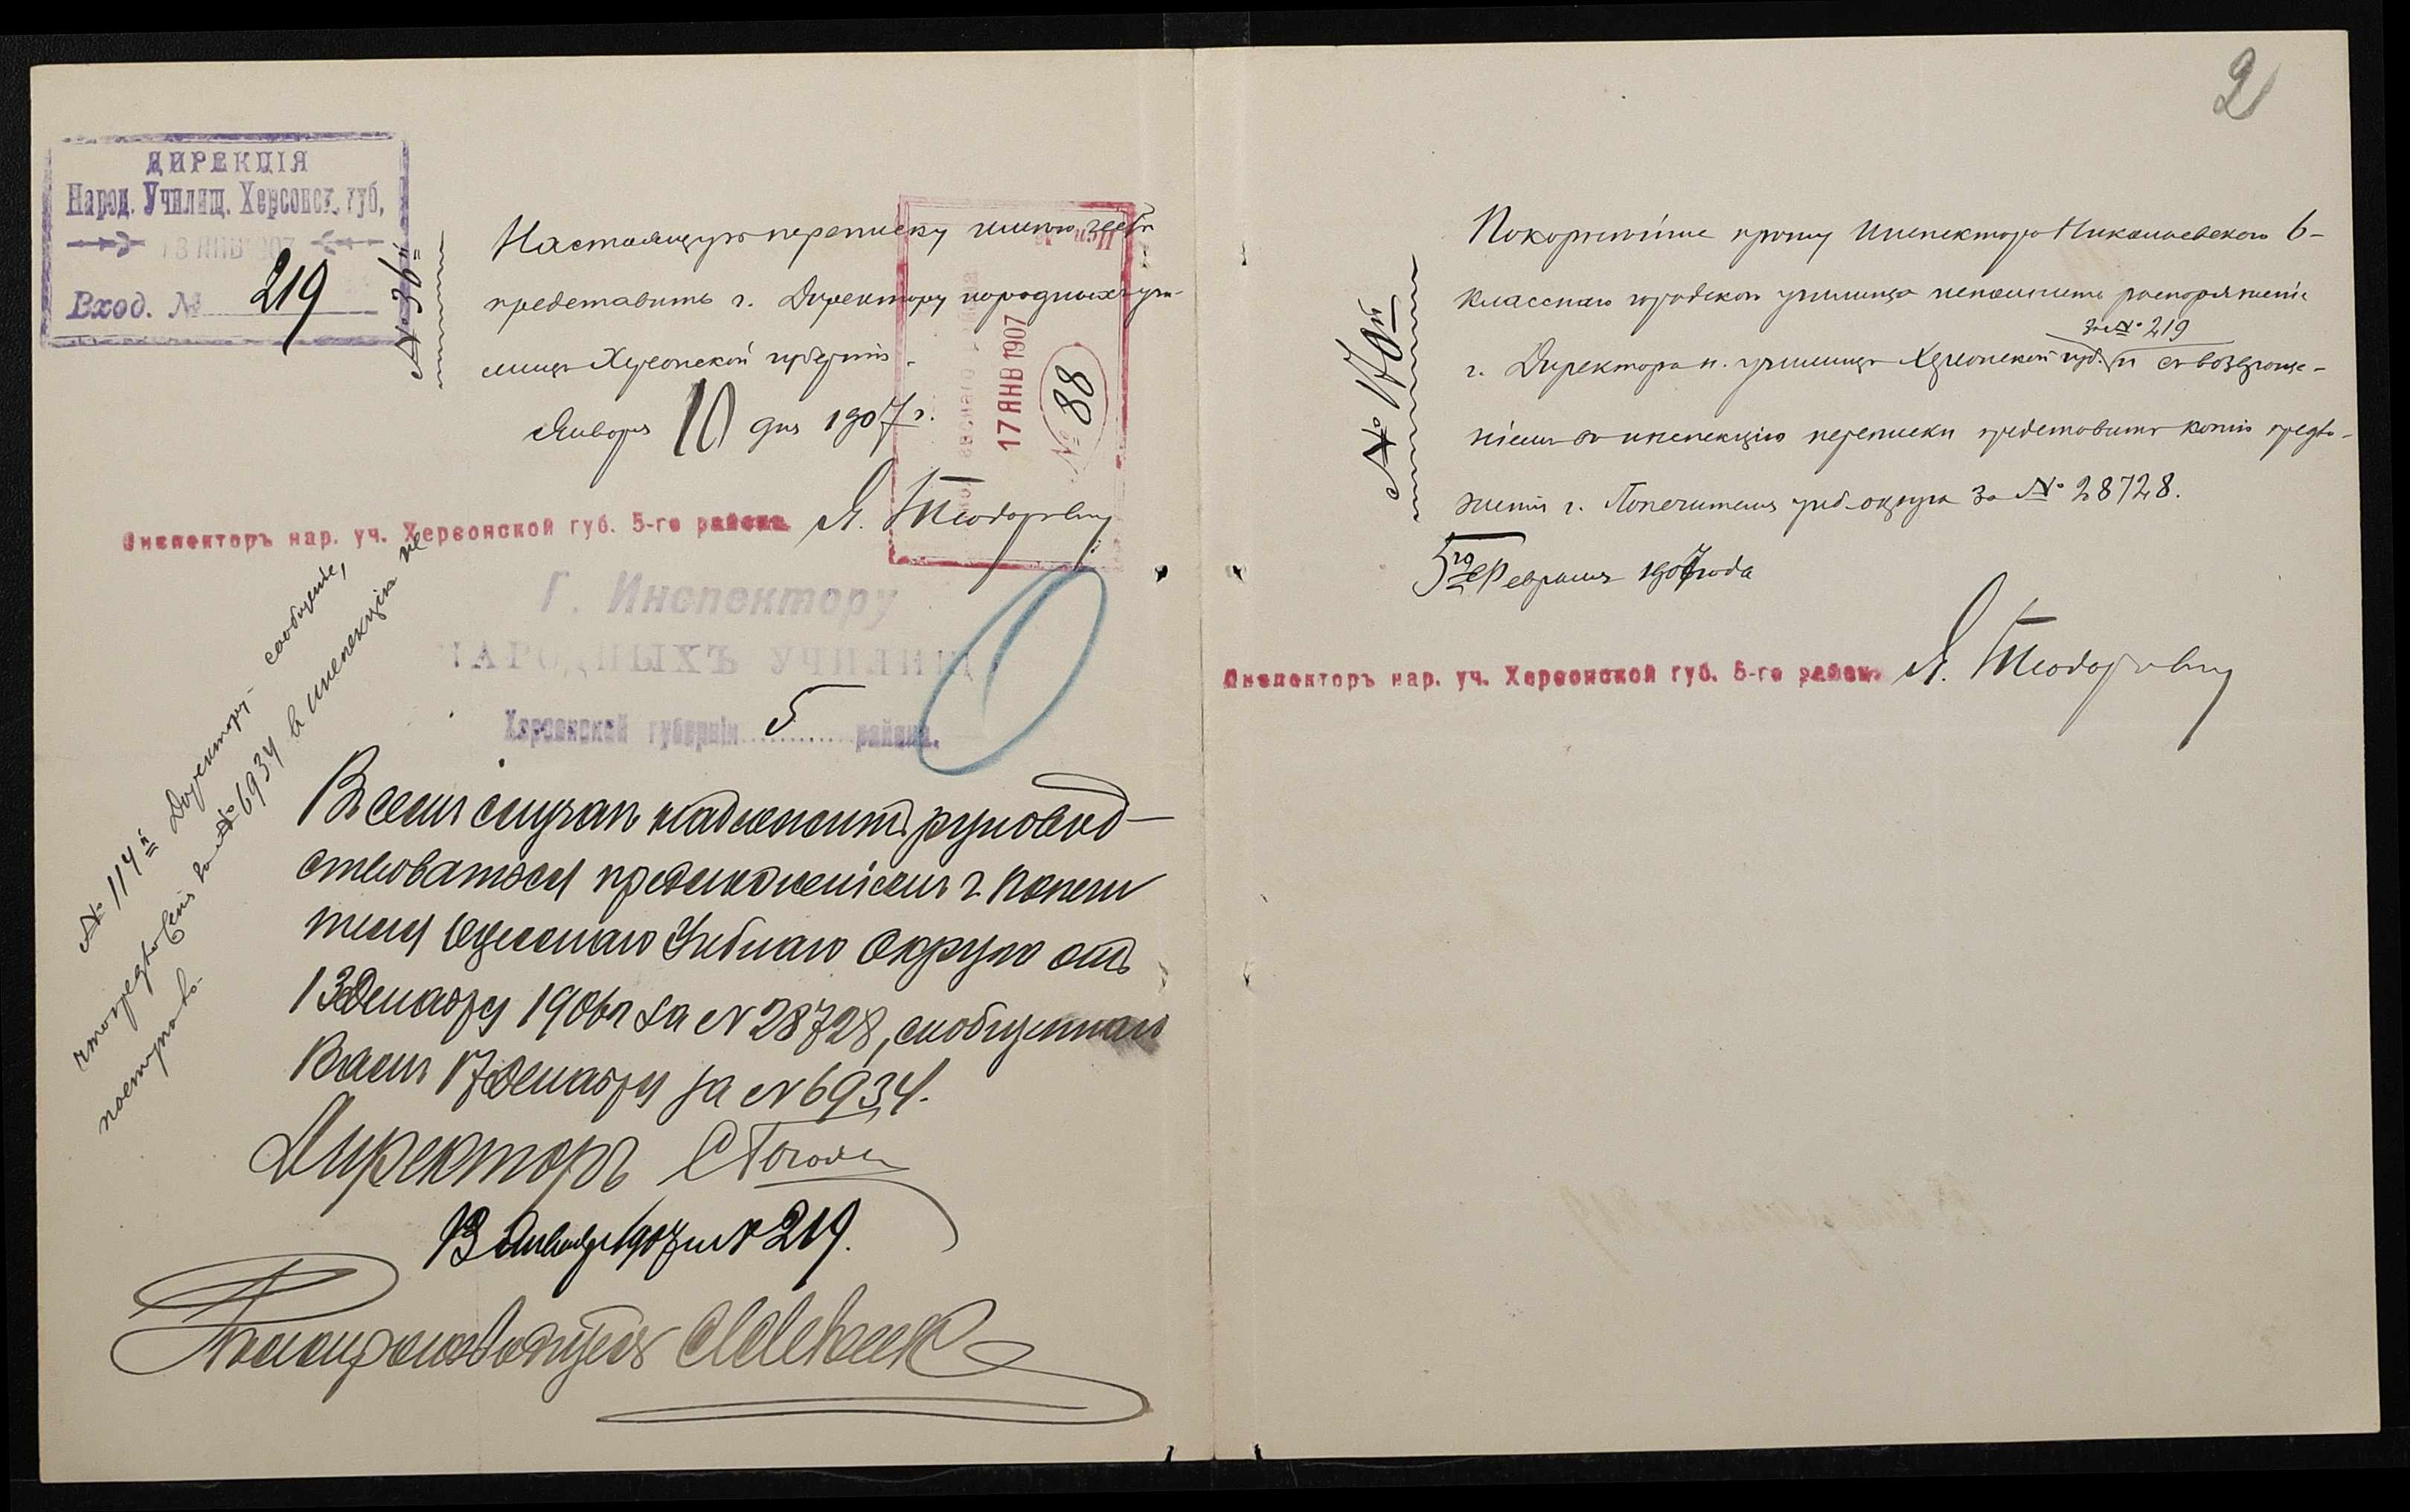 ДИРЕКЦІЯ
Народ. Училищ. Херсонск. губ.
13 ЯНВ 1907
Вход. № 219
№ 36й
Настоящую переписку имею честь
представить г. Директору народныхъ учи-
лищъ Херсонской губерніи.
Января 10 дня 1907 г.
17 ЯНВ 1907
№ 88
Инспекторъ нар. уч. Херсонской губ. 5-го района Я. Теодоровичъ
Г. Инспектору
НАРОДНЫХЪ УЧИЛИЩЪ
Херсонской губерніи 5 района.
Въ семъ случаѣ надлежитъ руковод-
ствоваться предложеніемъ г. Попечи
теля Одесскаго Учебнаго Округа отъ
13 Декабря 1906 г за № 28728, сообщеннаго
Вамъ 17 Декабря за № 6934.
Директоръ
13 Января 1907 г № 219.
Дѣлопроизводитель
№ 114й Директору сообщение,
что предложенія за № 6934 въ инспекцію не
поступало.
2
№ 170й
Покорнѣйше прошу Инспектора Николаевскаго 6-
класснаго городского училища исполнить распоряженіе
г. Директора н. училищъ Херсонской губ. за № 219 и съ возвраще-
ніемъ въ инспекцію переписки представить копію предло-
женія г. Попечителя учеб. округа за № 28728.
5го Февраля 1907 года
Инспекторъ нар. уч. Херсонской губ. 5-го района Я. Теодоровичъ